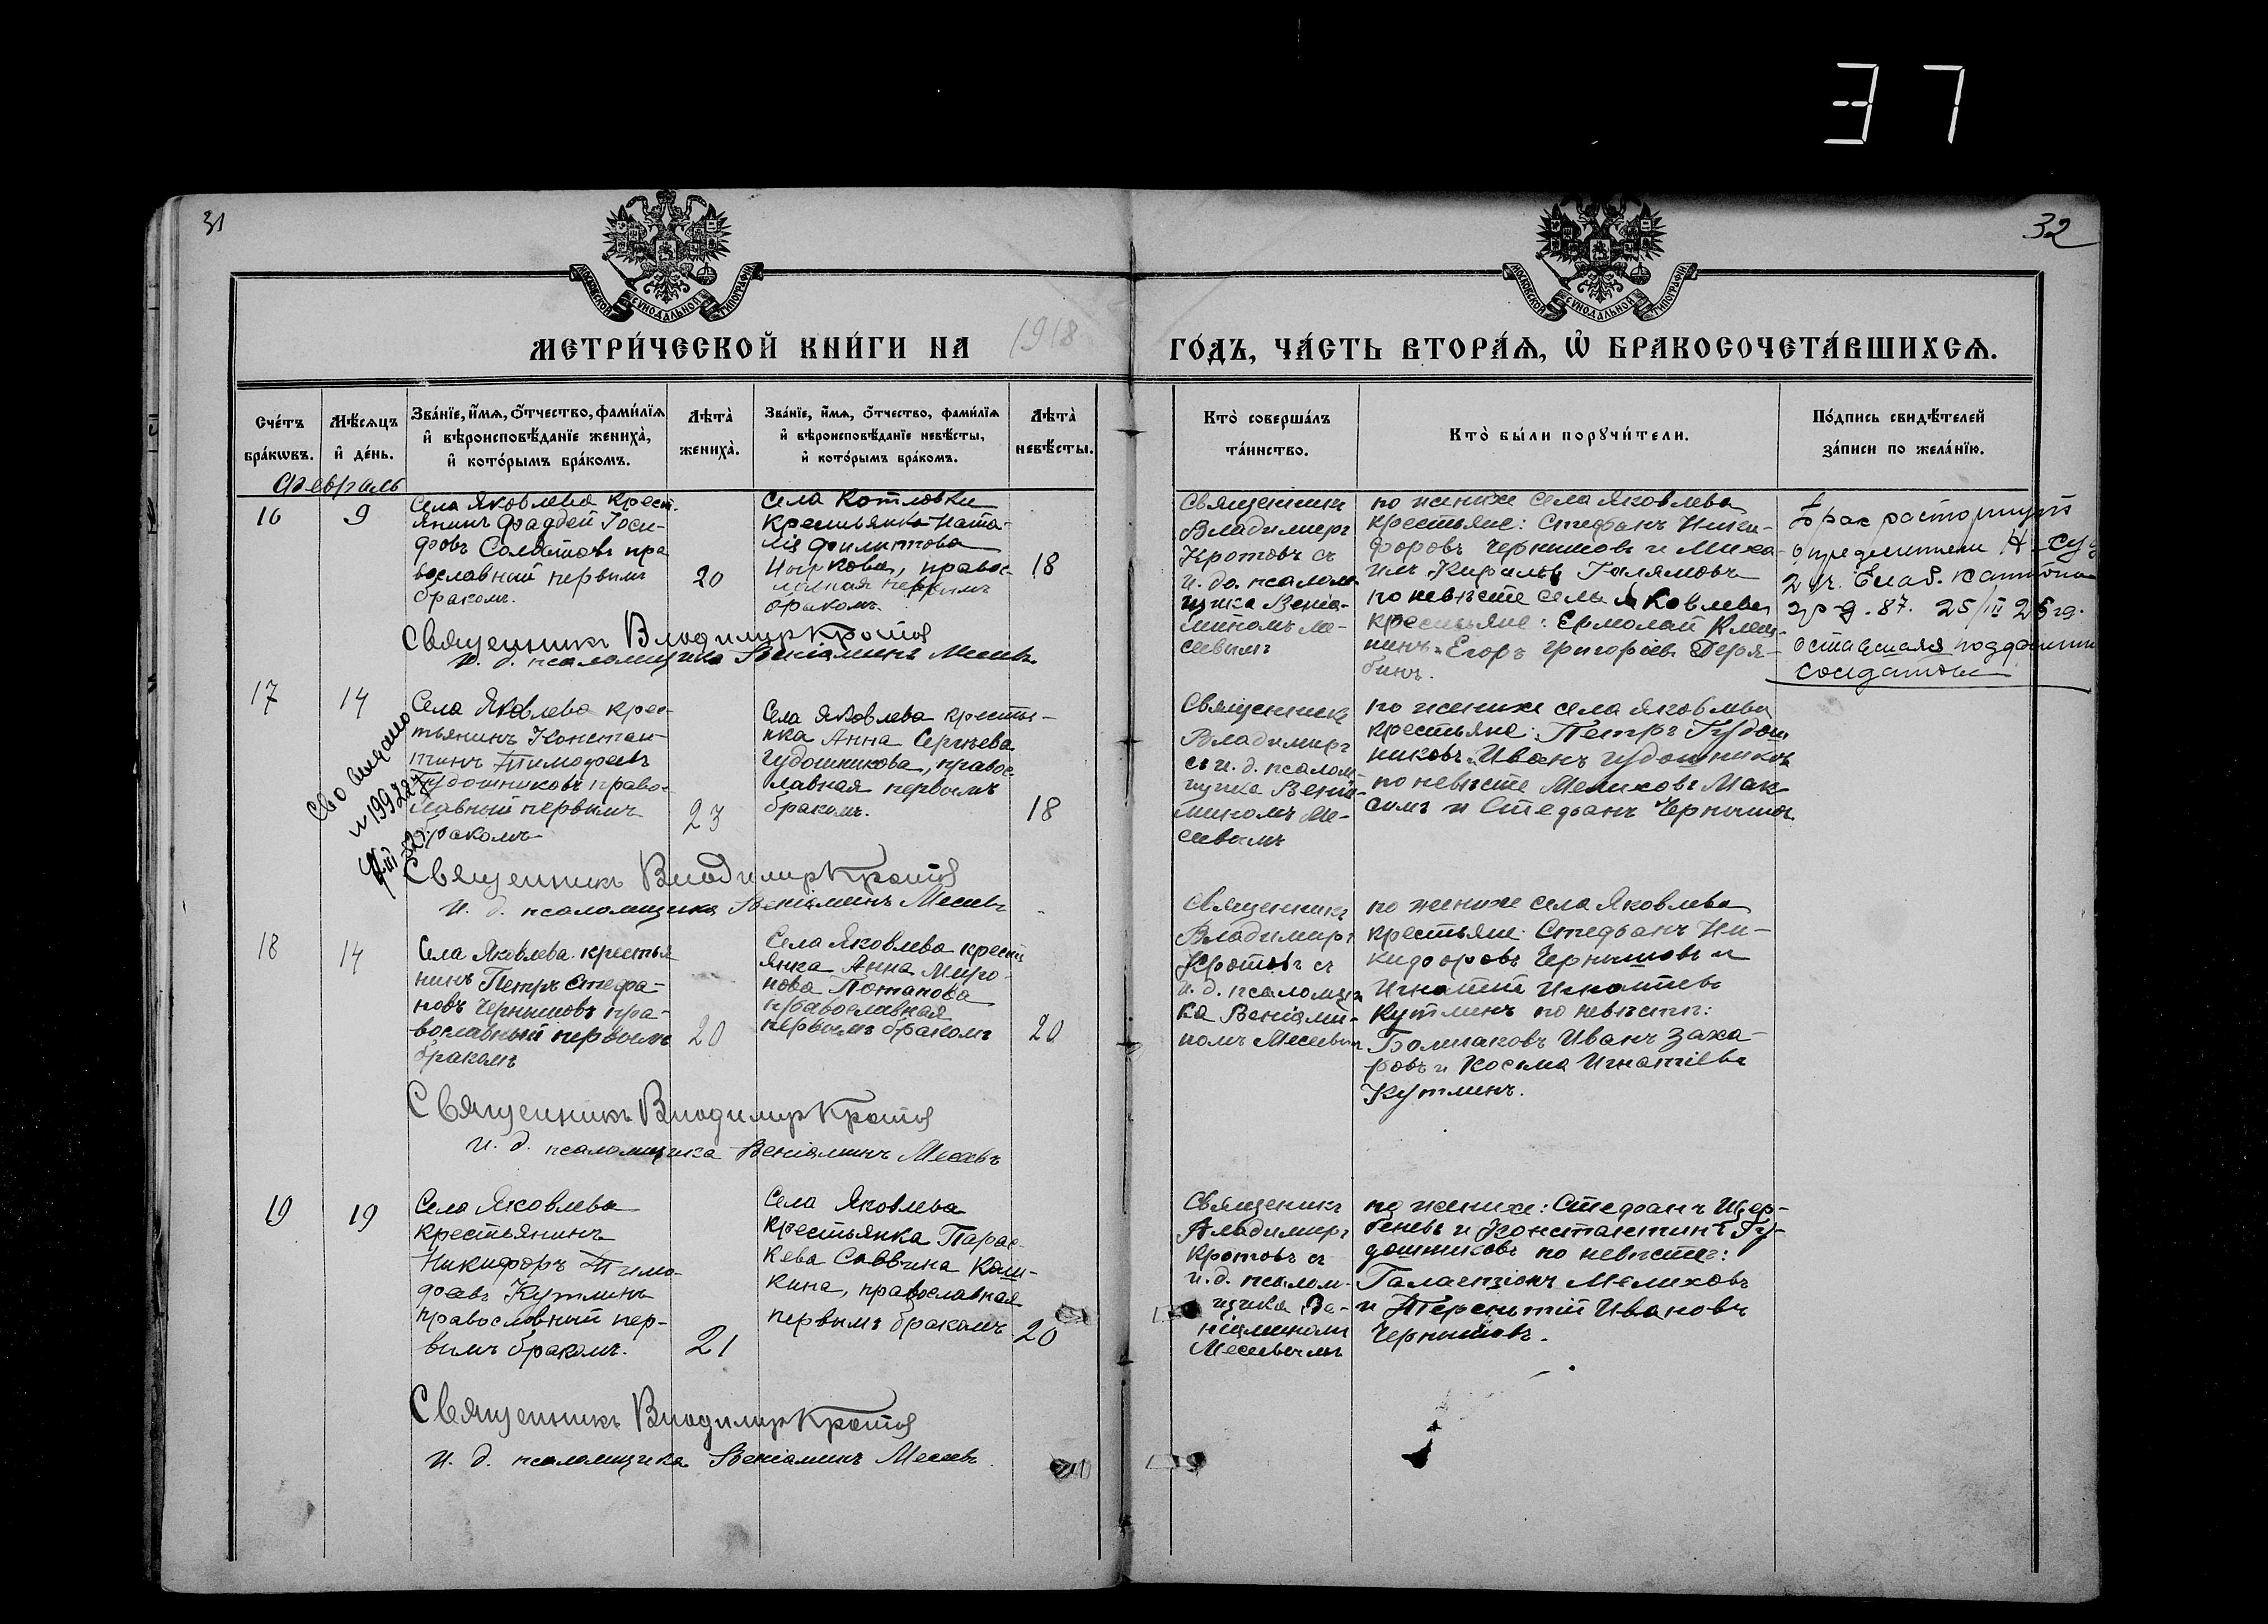 37
31
32
МОСКОВСКОЙ СѴНОДАЛЬНОЙ ТИПОГРАФІИ
МОСКОВСКОЙ СѴНОДАЛЬНОЙ ТИПОГРАФІИ
МЕТРИ́ЧЕСКОЙ КНИ́ГИ НА 1918 ГО́ДЪ, ЧА́СТЬ ВТОРА́Ѧ, Ѽ БРАКОСОЧЕТА́ВШИХСѦ.
Сче́тъ бра́кωвъ.
Мѣ́сѧцъ и҆ де́нь.
Зва́нїе, и҆́мѧ, ѻ҆́тчество, фами́лїѧ
и҆ вѣроисповѣ́данїе жениха̀,
и҆ кото́рымъ бра́комъ.
Лѣта̀ жениха̀.
Зва́нїе, и҆́мѧ, ѻ҆́тчество, фами́лїѧ
и҆ вѣроисповѣ́данїе невѣ́сты,
и҆ кото́рымъ бра́комъ.
Лѣта̀ невѣ́сты.
Кто̀ соверша́лъ
та́инство.
Кто̀ бы́ли порꙋчи́тели.
По́дпись свидѣ́телей
за́писи по жела́нїю.
Февраль
16
9
Села Яковлева крест
янинъ Фаддей Іоси-
фовъ Солдатовъ пра
вославный первымъ
бракомъ.
20
Села Котловки
крестьянка Ната-
лія Филиппова
, правос-
лавная первымъ
бракомъ.
18
Священникъ
Владимиръ
Кротовъ съ
и. до. псалом
щика Веніа-
миномъ Ме-
севымъ
по женихе села Яковлева
крестьяне: Стефанъ Ники-
форовъ Чернышовъ и Миха-
илъ Галямовъ
по невѣсте села Яковлева
крестьяне: Ермолай
Егоръ Григоріевъ Деря-
бинъ.
брак расторгнут
определением Н-Суд
2 уч. Елаб. кантона
гр-д. 87. 25/III 25 г.
оставшаяся под фамил
солдатовы
Священникъ Владимир Кротов
и. д. псаломщика Веніаминъ Месевъ
17
14
Св-о выдано
№ 1992
Села Яковлева крес-
тьянинъ Констан-
тинъ Тимофеевъ
Гудошниковъ право-
славный первымъ
бракомъ
23
Села Яковлева крестья-
нка Анна Сергѣева
Гудошникова, правос
лавная первымъ
бракомъ.
18
Священникъ
Владимиръ
съ и. д. псалом-
щика Веніа-
миномъ Ме-
севымъ
по женихе села Яковлева
крестьяне: Петръ Гудош
никовъ, Иванъ Гудошниковъ
по невѣсте Мелиховъ Мак-
симъ и Стефанъ Чернышовъ
Священникъ Владимир Кротов
и. д. псаломщика Веніаминъ Месевъ
18
14
Села Яковлева крестья
нинъ Петръ Стефа-
новъ Чернышовъ пра-
вославный первымъ
бракомъ
20
Села Яковлева крест
янка Анна Миро-
нова Потапова
православная
первымъ бракомъ
20
Священникъ
Владимиръ
Кротовъ съ
и. д. псаломщи
ка Веніами-
номъ Месевым
по женихе села Яковлева
крестьяне: Стефанъ Ни-
кифоровъ Чернышовъ и
Игнатій Игнатіев
Кутлинъ по невѣстѣ:
Большаковъ Иванъ Заха-
ровъ и Косьма Игнатіевъ
Кутлинъ.
Священникъ Владимир Кротов
и. д. псаломщика Веніаминъ Месевъ
19
19
Села Яковлева
крестьянинъ
Никифоръ Тимо-
феевъ Кутлинъ
православный пер-
вымъ бракомъ.
21
Села Яковлева
крестьянка Парас-
кева Саввина Каш-
кина, православная
первымъ бракомъ
20
Священикъ
Владимиръ
Кротовъ съ
и. д. псалом-
щика Ве-
ніаминомъ
Месевымъ
по женихе: Стефанъ Щер-
беневъ и Константинъ Гу-
дошниковъ по невѣсте:
Галактіонъ Мелиховъ
и Терентій Ивановъ
Чернышовъ.
Священникъ Владимир Кротов
и. д. псаломщика Веніаминъ Месевъ